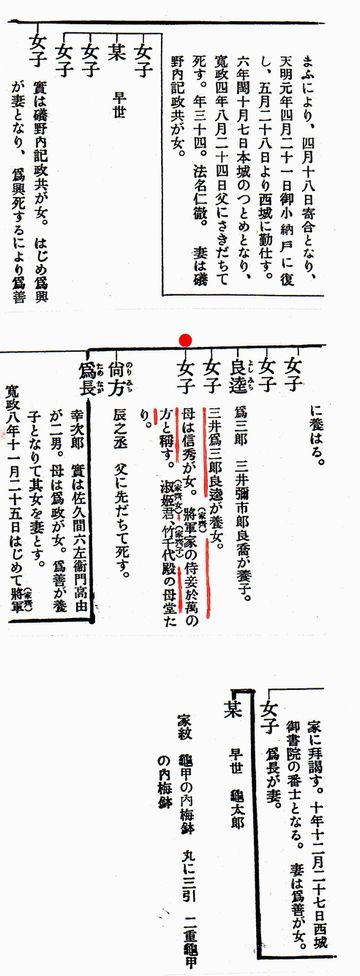 まふにより、四月十八日寄合となり、
天明元年四月二十一日御小納戸に復
し、五月二十八日より西城に勤仕す。
六年閏十月七日本城のつとめとなり、
寛政四年八月二十四日父にさきだちて
死す。年三十四。法名仁徹。 妻は磯
野内記政共が女。
女子
某 早世
女子
女子
女子 實は磯野内記政共が女。はじめ爲興
が妻となり、爲興死するにより爲善
に養はる。
女子
女子
良逵 よしみち 爲三郎 三井彌市郎良喬が養子。
女子 三井爲三郎良逵が養女。
女子 母は信秀が女。 將軍家(家齊)の侍妾於萬の
方と稱す。淑姫君(家齊女)、竹千代殿(家齊子)の母堂た
り。
尙方 のりみち 辰之丞 父に先だちて死す。
爲長 ためなが 幸次郎 實は佐久間六左衞門高由
が二男。母は爲政が女。爲善が養
子となりて其女を妻とす。
寛政八年十一月二十五日はじめて將軍(家齊)
家に拜謁す。十年十二月二十七日西城
御書院の番士となる。 妻は爲善が女。
女子 爲長が妻。
某 早世 龜太郎
家紋 龜甲の內梅鉢 丸に三引 二重龜甲
の內梅鉢